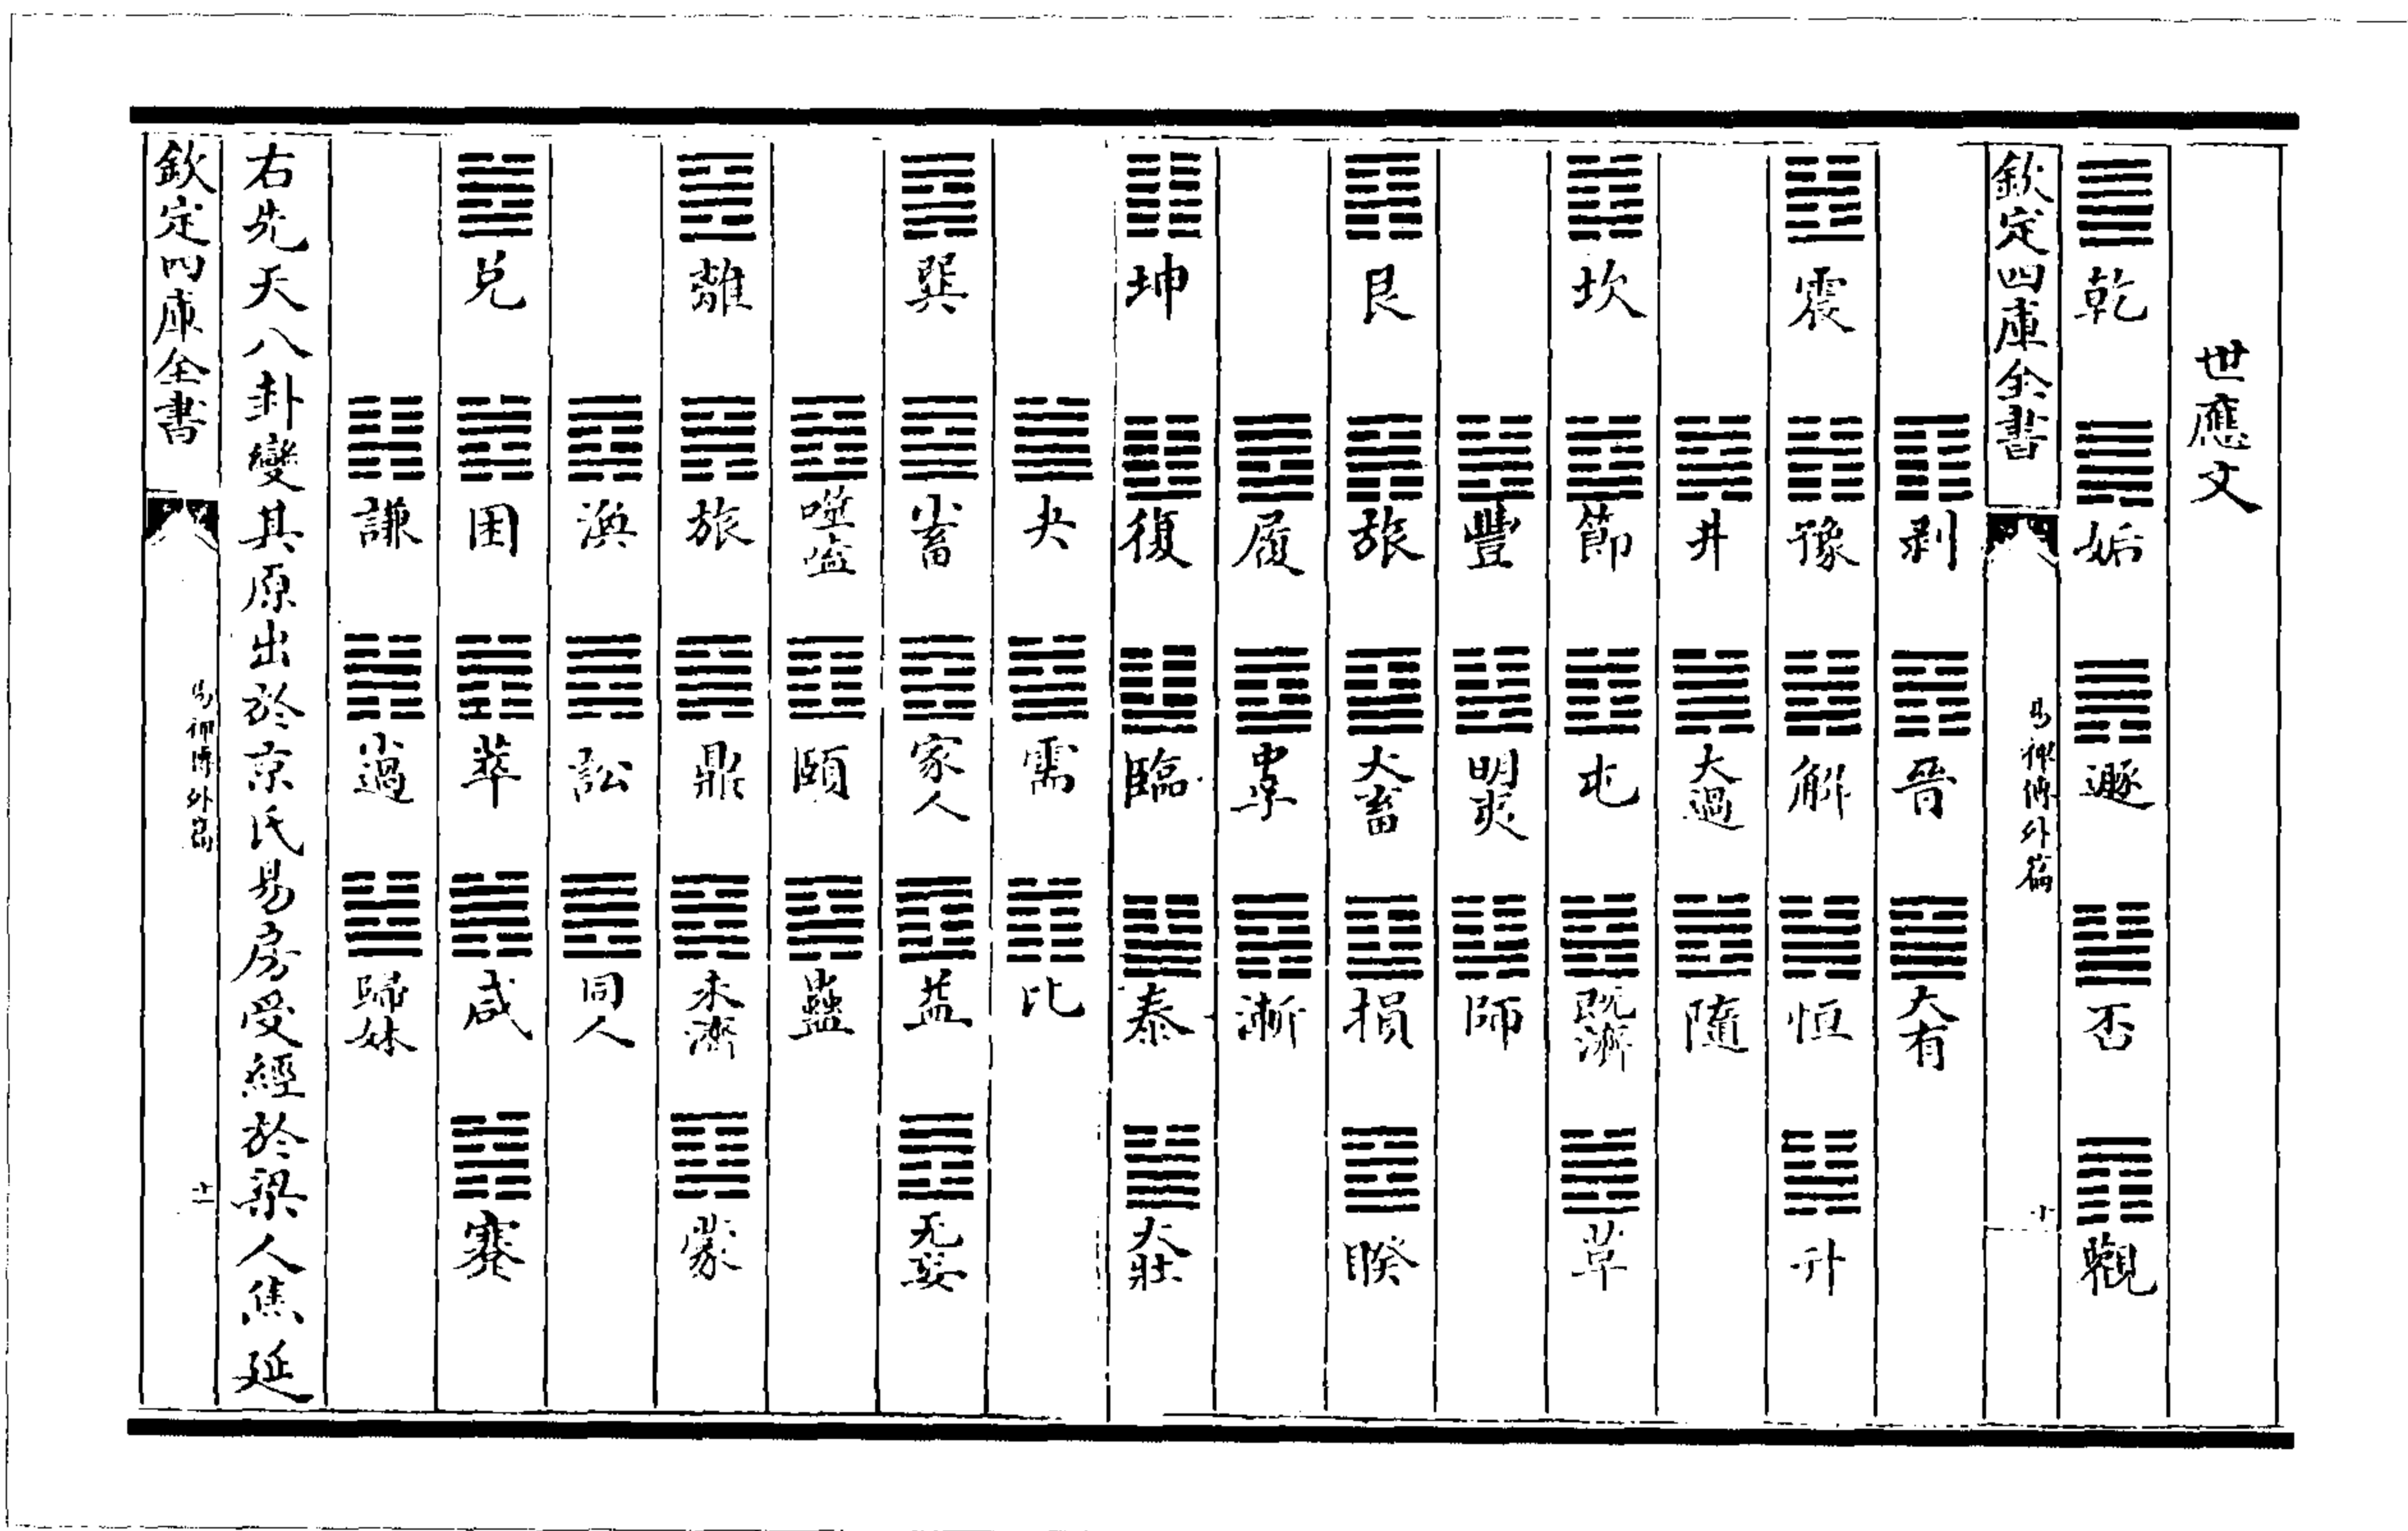 世應文
乾 姤 遯 否 觀
欽定四庫全書 易裨傳外篇 十
剥 晉 大有
震 豫 解 恒 升
井 大過 隨
坎 節 屯 既濟 革
豐 明夷 師
艮 旅 大畜 損 睽
履 中孚 漸
坤 復 臨 泰 大壯
夬 需 比
巽 小畜 家人 益 无妄
噬嗑 頤 蠱
離 旅 鼎 未濟 蒙
渙 訟 同人
兑 困 萃 咸 蹇
謙 小過 歸妹
右先天八卦變其原出於京氏易房受經於梁人焦延
欽定四庫全書 易裨傳外篇 十一